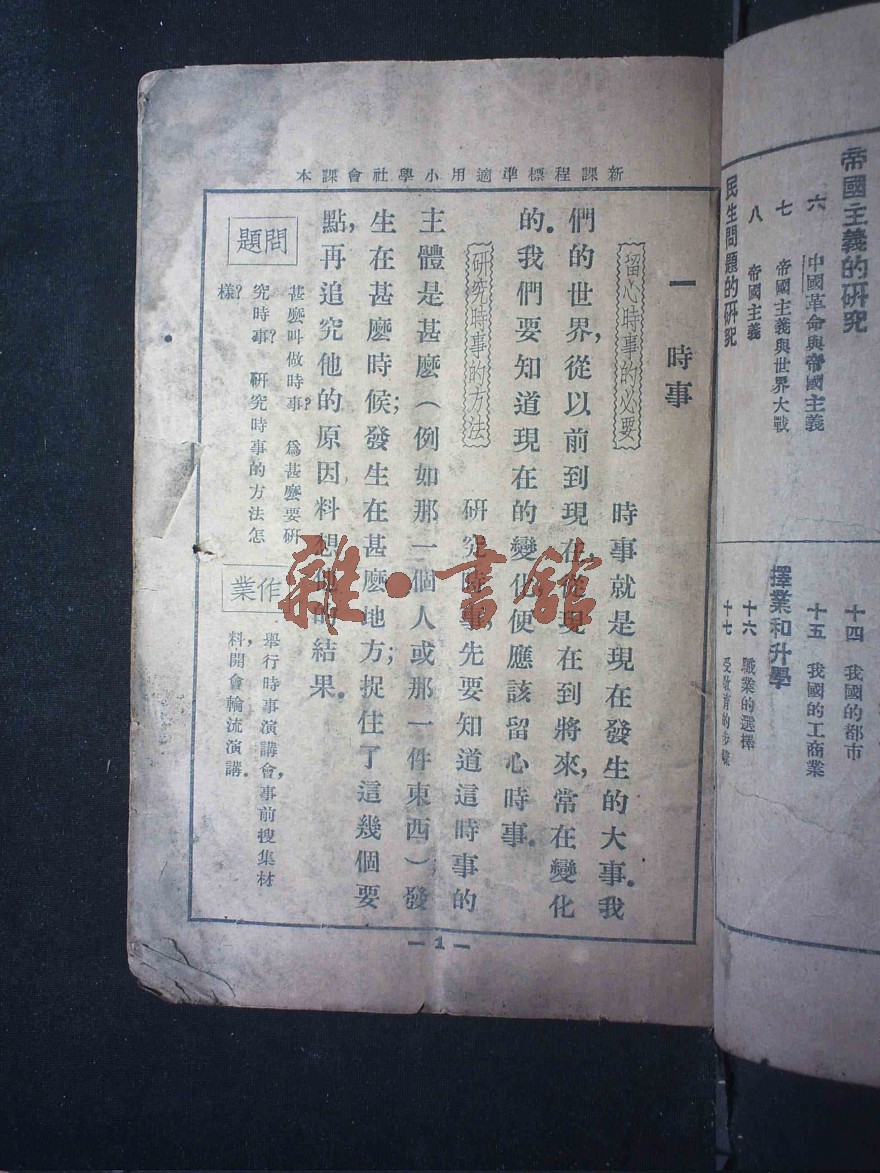 帝國主義的研究
六 中國革命與帝國主義
七 帝國主義與世界大戰
八 帝國主義
民生問題的研究
十四 我國的都市
十五 我國的工商業
擇業和升學
十六 職業的選擇
十七 受敎育的步驟
新課程標準適用小學社會課本
一 時事
留心時事的必要
時事就是現在發生的大事。我
們的世界,從以前到現在,從現在到將來,常在變化
的。我們要知道現在的變化,便應該留心時事。
研究時事的方法
研究時事,先要知道這時事的
主體是甚麼(例如那一個人或那一件東西)發
生在甚麼時候;發生在甚麼地方;捉住了這幾個要
點,再追究他的原因料想他的結果。
問題
甚麼叫做時事? 爲甚麼要研
究時事? 研究時事的方法怎
樣?
作業
舉行時事演講會,事前搜集材
料,開會輪流演講。
— 1 —
雜·書館